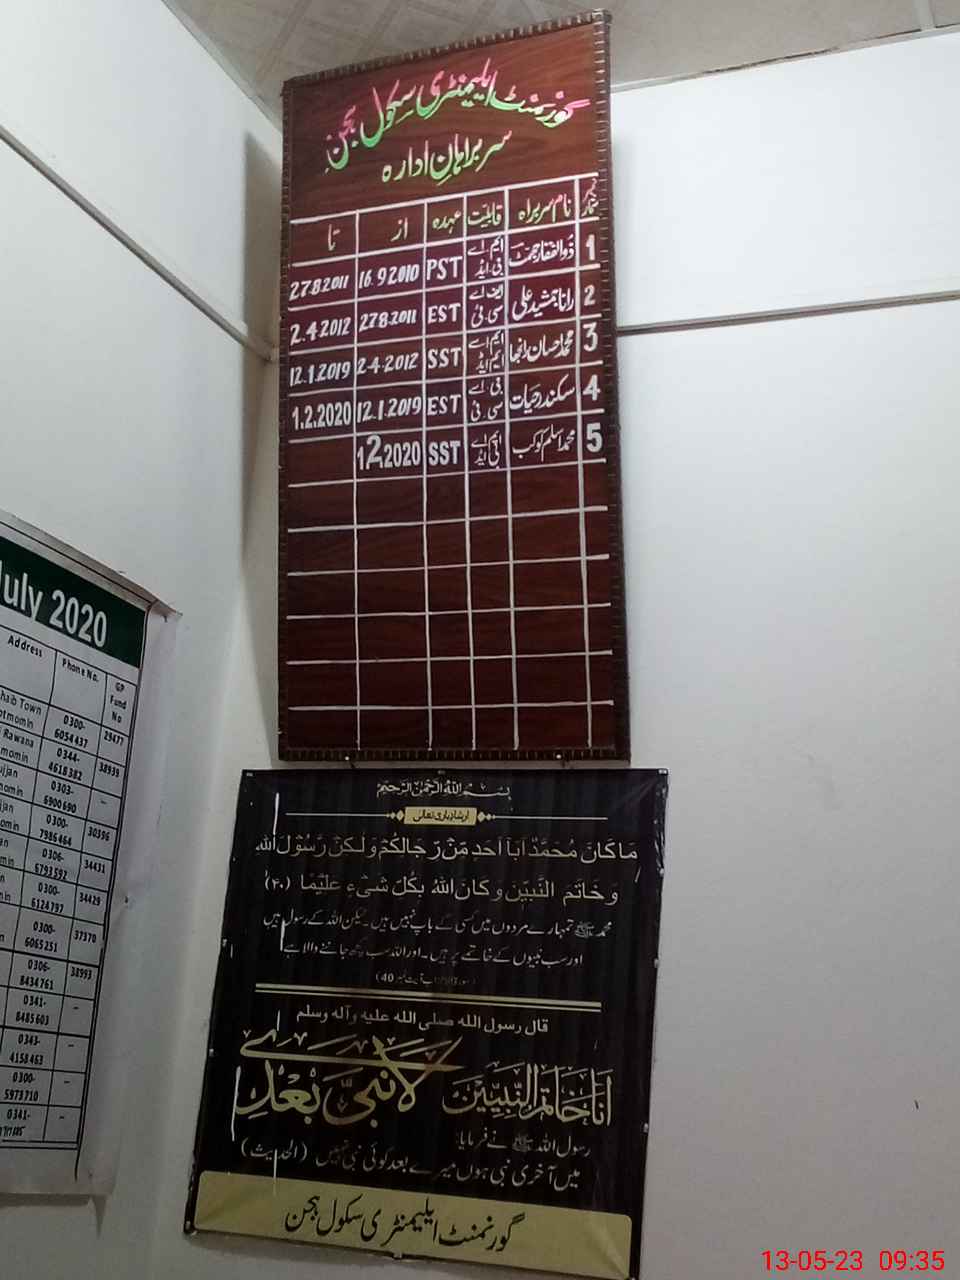 گورنمنٹ ایلیمنٹری سکول ہجن
سربراہانِ ادارہ
نمبر شمار نام سربراہ قابلیت عہدہ از تا
1 ذوالفقار حجت ایم اے بی ایڈ PST 16.9.2010 27.8.2011
2 رانا جمشید علی ایف اے سی ٹی EST 27.8.2011 2.4.2012
3 محمد احسان رانجھا ایم اے ایم ایڈ SST 2-4-2012 12.1.2019
4 سکندر حیات بی اے سی ٹی EST 12.1.2019 1.2.2020
5 محمد اسلم کوکب ایم اے بی ایڈ SST 1.2.2020
July 2020
Address Phone No. GP Fund No
haib Town
otmomin 0300-6054437 29477
Rawana
momin 0344-4618382 38939
ujjan
homin 0303-6900690 --
jan
omin 0300-7986464 30396
an
min 0306-6793592 34431
0300-6124797 34429
0300-6065251 37370
0306-8434761 38993
0341-8485603 --
0343-4158463 --
0300-5973710 --
0341- --
بسم الله الرحمن الرحيم
ارشاد باری تعالیٰ
مَا كَانَ مُحَمَّدٌ اَبَآ اَحَدٍ مِّنْ رِّجَالِكُمْ وَلٰكِنْ رَّسُوْلَ اللّٰهِ
وَ خَاتَمَ النَّبِيّٖنَ وَ كَانَ اللّٰهُ بِكُلِّ شَیْءٍ عَلِيْمًا (۴۰)
محمد ﷺ تمہارے مردوں میں کسی کے باپ نہیں ہیں۔ لیکن اللہ کے رسول ہیں
اور سب نبیوں کے خاتمے پر ہیں۔ اور اللہ سب کچھ جاننے والا ہے
(سورۃ الاحزاب آیت نمبر 40)
قال رسول الله صلى الله عليه وآله وسلم
اَنَا خَاتَمُ النَّبِيِّيْنَ لَا نَبِيَّ بَعْدِيْ
رسول اللہ ﷺ نے فرمایا:
میں آخری نبی ہوں میرے بعد کوئی نبی نہیں (الحدیث)
گورنمنٹ ایلیمنٹری سکول ہجن
13-05-23 09:35